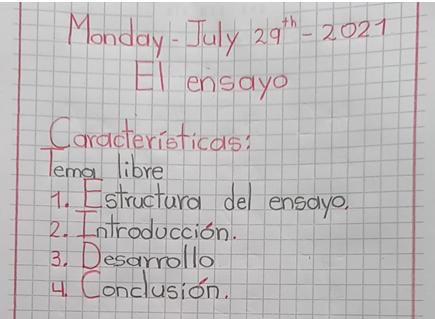 Monday - July 29th - 2021
El ensayo
Características:
Tema libre
1. Estructura del ensayo.
2. Introducción.
3. Desarrollo
4. Conclusión.